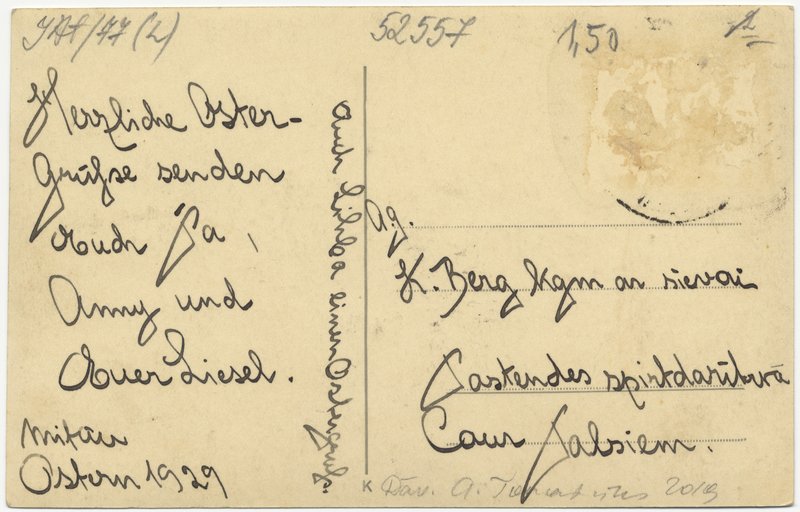 52557
1,50
Herzliche Oster-
grüße senden
Euch Ja,
Anny und
Euer Liesel.
Mitau
Ostern 1929
Auch einen Ostergruß.
Ag.
K. Berg kgm ar sievai
Pastendes spirtdarītavā
Caur Talsiem.
K
Dāv. A. 2019